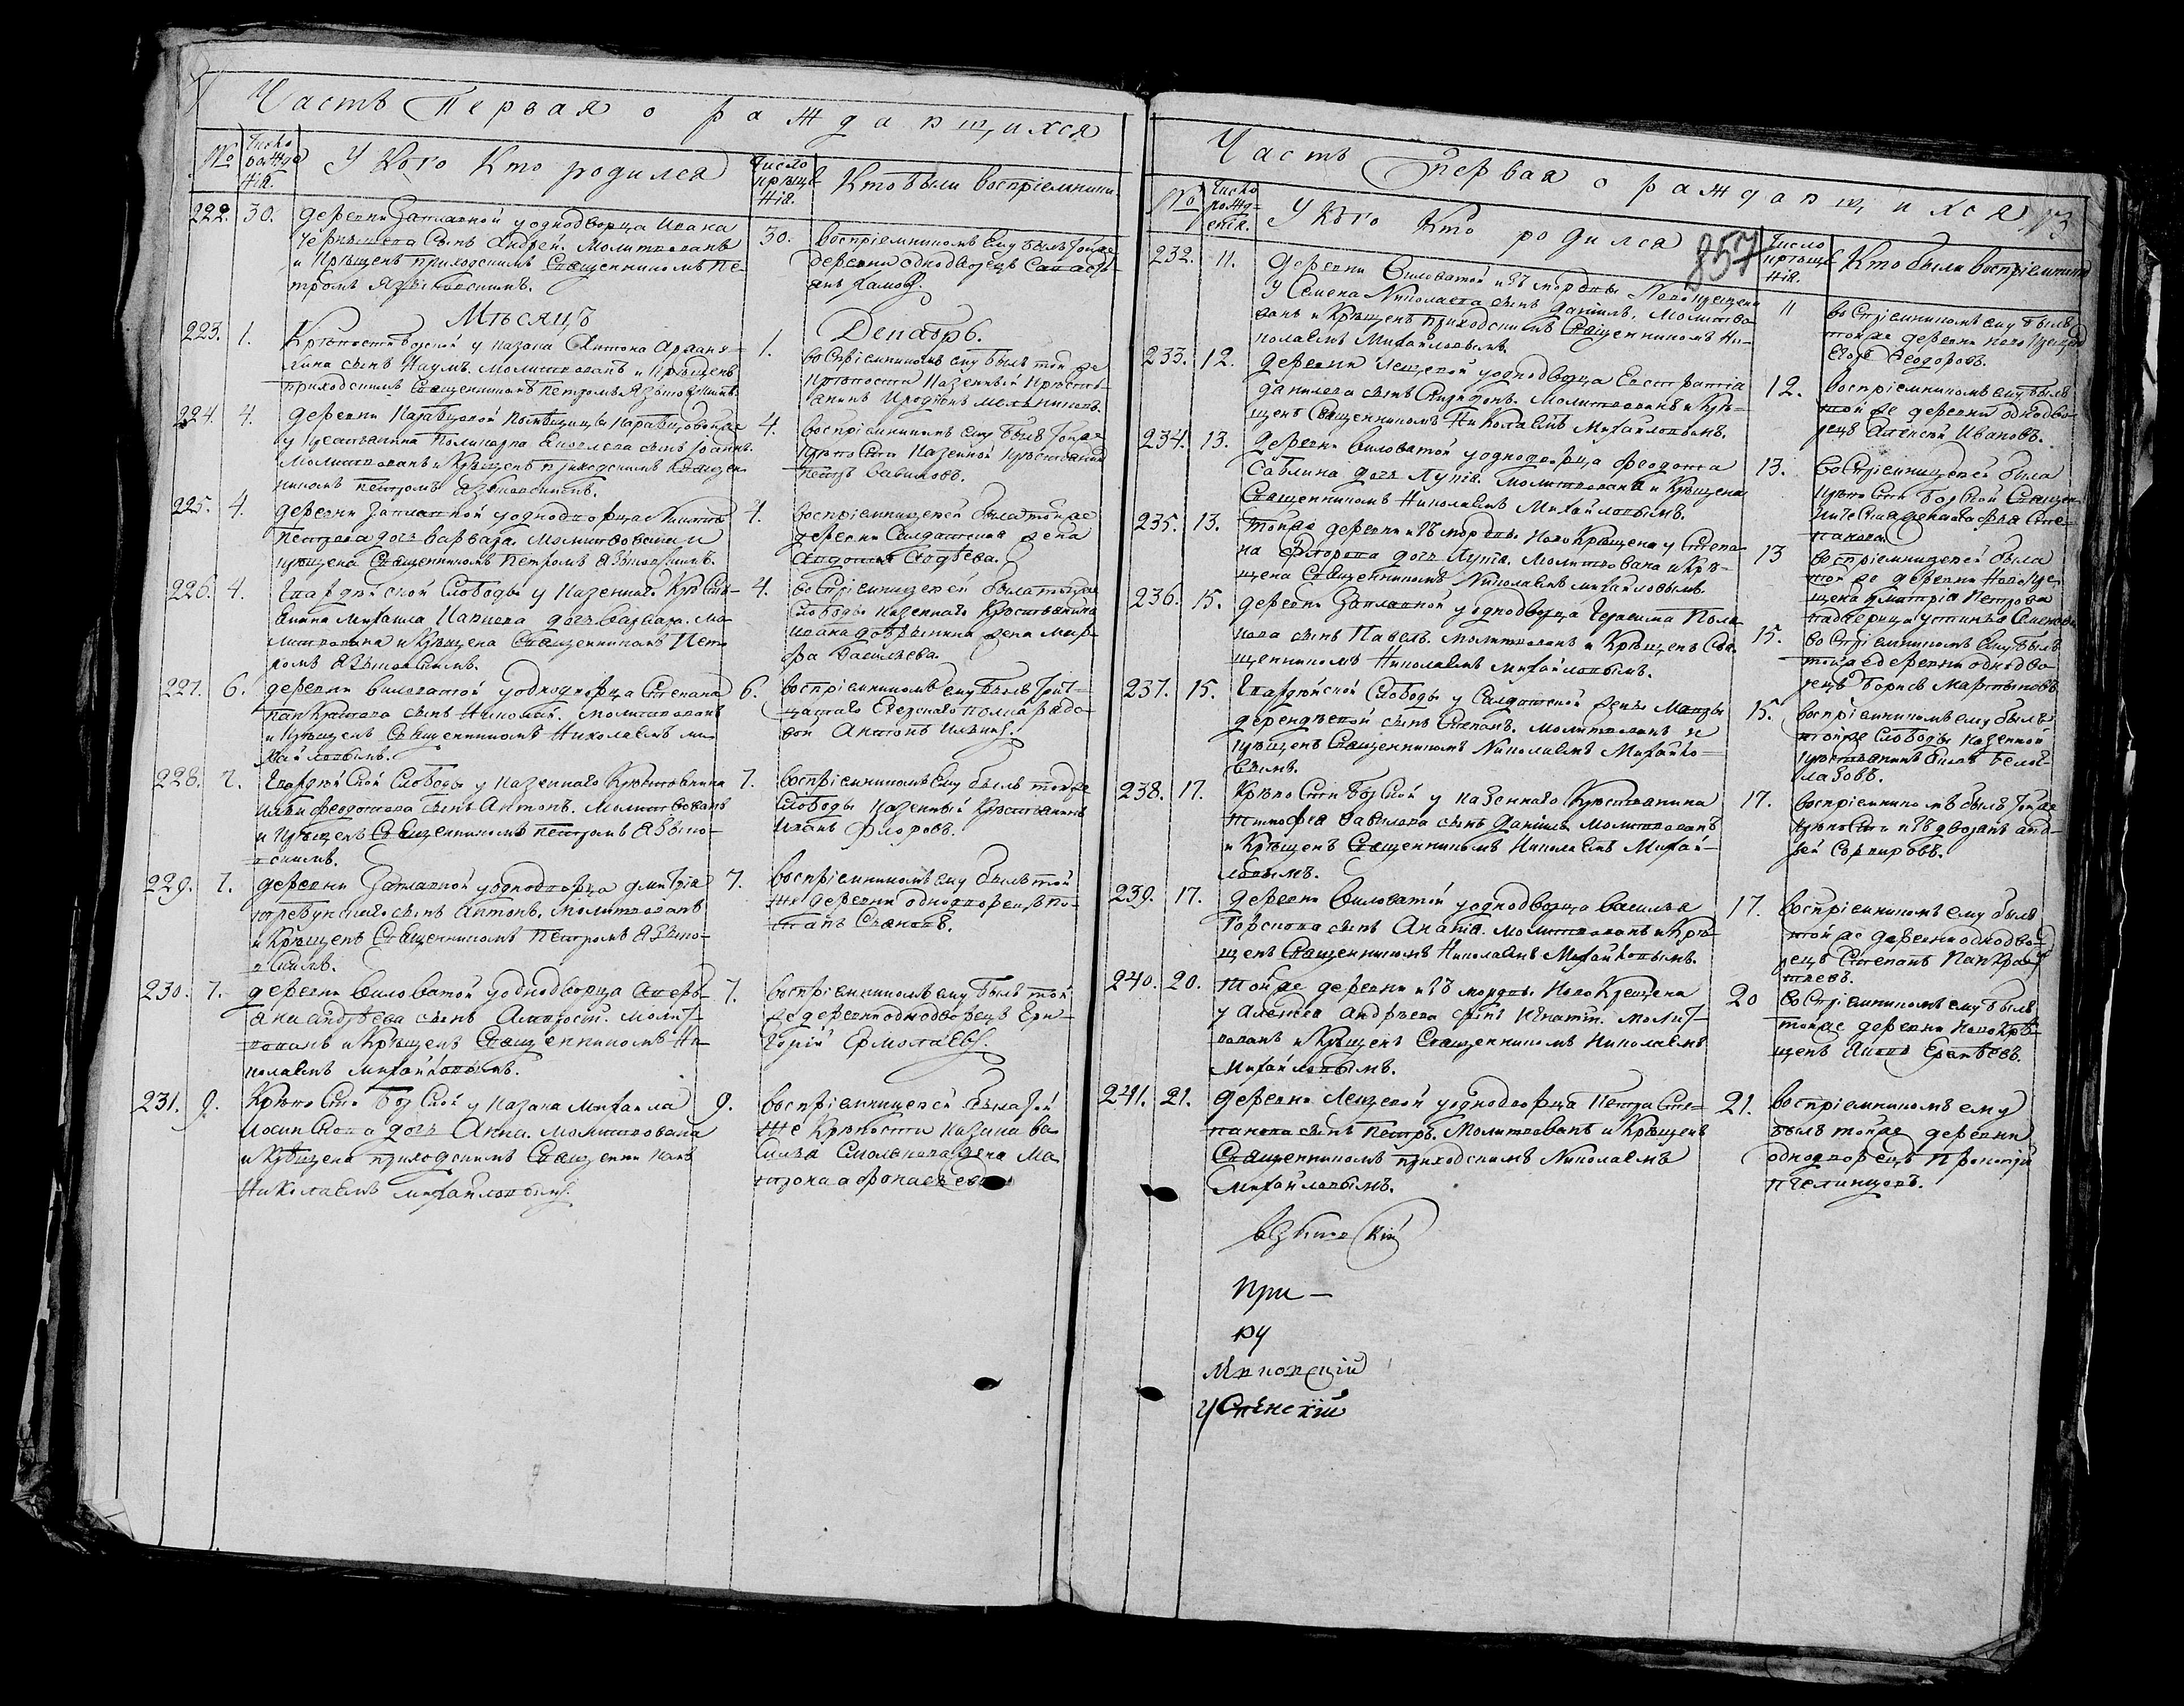 Часть Первая о раждающихся
№
Число рожденія.
У кого Кто родился
Число крещенія.
Кто были воспріемники
222. 30. деревни Заплавной у однодворца Ивана
сынъ Андрей. Молитвованъ
и Крещенъ приходскимъ Священникомъ Пе-
тромъ Языковскимъ.
30. воспріемникомъ ему былъ той же
деревни однодворецъ
Мѣсяцъ
Декабрь.
223. 1. Крѣпости борской у казака Антона
сынъ Наумъ. молитвованъ и Крещенъ
приходскимъ Священникомъ Петромъ Языковскимъ.
1. воспріемникомъ ему былъ той же
Крѣпости Казенный Кресть-
янинъ Иродіонъ Мельниковъ.
224. 4. деревни
у крестьянина Поликарпа сынъ Іоаннъ.
Молитвованъ и Крещенъ приходскимъ Священ-
никомъ Петромъ Языковскимъ.
4. воспріемникомъ ему былъ той же
крѣпости Казенной крестьянинъ
Петръ Вавиловъ.
225. 4. деревни Заплавной у однодворца Никиты
Петрова дочь Варвара. Молитвована и
крещена Священникомъ Петромъ Языковскимъ.
4. воспріемницей была той же
деревни Салдатская жена
Авдотья Авдѣева.
226. 4. Гвардейской Слободы у Казеннаго Кресть-
янина Михаила дочь Варвара. Мо-
литвована и Крещена Священникомъ Пет-
ромъ Языковскимъ.
4. воспріемницей была той же
Слободы казеннаго Крестьянина
Ивана Добрынина жена Мар-
фа Васильева.
227. 6. деревни Виловатой у однодворца Степана
Панкратова сынъ Николай. Молитвованъ
и Крещенъ Священникомъ Николаемъ Ми-
хайловымъ.
6. воспріемникомъ ему былъ Трит-
цатаго Егерскаго полка рядо-
вой Антонъ Ильинъ.
228. 7. Гвардейской Слободы у Казеннаго Крестьянина
Ильи Феодотова сынъ Антонъ. Молитвованъ
и Крещенъ Священникомъ Петромъ Языко-
вскимъ.
7. воспріемникомъ ему былъ той же
Слободы казенный Крестьянинъ
Иванъ Флоровъ.
229. 7. деревни Заплавной у однодворца Дмитрія
Требунскаго сынъ Антонъ. Молитвованъ
и Крещенъ Священникомъ Петромъ Языко-
вскимъ.
7. воспріемникомъ ему былъ той
же деревни однодворецъ По-
тапъ
230. 7. деревни Виловатой у однодворца Аверь-
яна Андрѣева сынъ Амвросій. Молит-
вованъ и Крещенъ Священникомъ Ни-
колаемъ Михайловымъ.
7. воспріемникомъ ему былъ той
же деревни однодворецъ Гри-
горій Ермолаевъ.
231. 9. Крѣпости Борской у казака Михаила
дочь Анна. Молитвована
и Крещена приходскимъ Священникомъ
Николаемъ Михайловымъ.
9. воспріемницей была той
же Крѣпости казака Ва-
силья жена Ма-
трона Афонасьева.
Часть Первая о раждающихся
73
857
№
Число рожденія.
У кого Кто родился
Число крещенія.
Кто были воспріемники
232. 11. деревни Виловатой изъ мордвы Новокрещена
у Семена Николаева сынъ Даніилъ. Молитво-
ванъ и Крещенъ приходскимъ Священникомъ Ни-
колаемъ Михайловымъ.
11 воспріемникомъ ему былъ
той же деревни новокрещенъ
Егоръ Феодоровъ.
233. 12. деревни Лещевой у однодворца Евстратія
Данилова сынъ Спиридонъ. Молитвованъ и Кре-
щенъ Священникомъ Николаемъ Михайловымъ.
12. воспріемникомъ ему былъ
той же деревни однодво-
рецъ Алексѣй Ивановъ.
234. 13. деревни Виловатой у однодворца Феодота
Саблина дочь Лукія. Молитвована и Крещена
Священникомъ Николаемъ Михайловымъ.
13. воспріемницей была
крѣпости Борской Священ-
ническая
235. 13. той же деревни изъ мордвы Новокрещена у Степа-
на Флорова дочь Лукія. Молитвована и Кре-
щена Священникомъ Николаемъ Михайловымъ.
13 воспріемницей была
той же деревни Новокре-
щена Дмитрія Петрова
падчерица Устинья Семенова
236. 15. деревни Заплавной у однодворца Герасима Поля-
кова сынъ Павелъ. Молитвованъ и Крещенъ Свя-
щенникомъ Николаемъ Михайловымъ.
15. воспріемникомъ ему былъ
той же деревни однодво-
рецъ Борисъ Мартыновъ
237. 15. Гвардейской Слободы у Салдатской жены Мавры
Дерендяевой сынъ Степанъ. Молитвованъ и
крещенъ Священникомъ Николаемъ Михайло-
вымъ.
15. воспріемникомъ ему былъ
той же Слободы казенной
крестьянинъ Бело-
глазовъ.
238. 17. Крѣпости Борской у казеннаго Крестьянина
Тимофея Вавилова сынъ Даніилъ. Молитвованъ
и Крещенъ Священникомъ Николаемъ Михай-
ловымъ.
17. воспріемникомъ былъ той же
крѣпости изъ дворянъ Анд-
рей
239. 17. деревни Виловатой у однодворца Василья
Горскова сынъ Ананія. Молитвованъ и Кре-
щенъ Священникомъ Николаемъ Михайловымъ.
17. воспріемникомъ ему былъ
той же деревни однодво-
рецъ Степанъ Панкра-
тьевъ.
240. 20. той же деревни изъ мордвы Новокрещена
у Алексея Андрѣева сынъ Игнатій. Молит-
вованъ и Крещенъ Священникомъ Николаемъ
Михайловымъ.
20 воспріемникомъ ему былъ
той же деревни новокре-
щенъ
241. 21. деревни Лещевой у однодворца Петра Сте-
панова сынъ Петръ. Молитвованъ и Крещенъ
Священникомъ приходскимъ Николаемъ
Михайловымъ.
21. воспріемникомъ ему
былъ той же деревни
однодворецъ Прокопій
Пчелинцовъ.
При—
ру
Успенскій